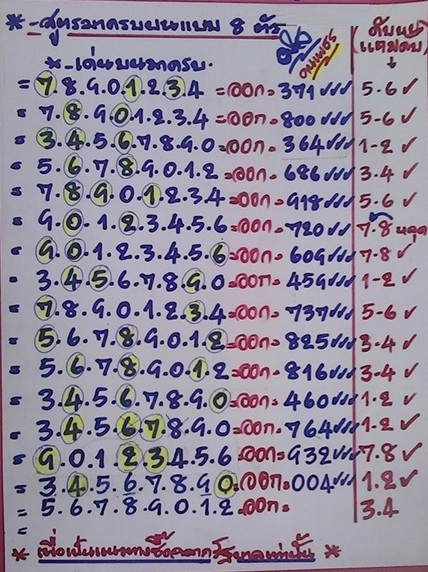 *-สูตรมาครบบนแบบ 8 ตัว
ดับบน
แถมดับ
*-เด่นบนมาครบ.
= 7.8.9.0.1.2.3.4 =ออก= 371 ✓✓✓ 5-6 ✓
= 7.8.9.0.1.2.3.4 =ออก= 800 ✓✓✓ 5-6 ✓
= 3.4.5.6.7.8.9.0 =ออก= 364 ✓✓✓ 1-2 ✓
= 5.6.7.8.9.0.1.2 =ออก= 686 ✓✓✓ 3.4 ✓
= 7.8.9.0.1.2.3.4 =ออก= 918 ✓✓✓ 5.6 ✓
= 9.0.1.2.3.4.5.6 =ออก= 720 ✓✓ 7.8 หลุด
= 9.0.1.2.3.4.5.6 =ออก= 609 ✓✓✓ 7-8 ✓
= 3.4.5.6.7.8.9.0 =ออก= 459 ✓✓✓ 1-2 ✓
= 7.8.9.0.1.2.3.4 =ออก= 737 ✓✓✓ 5-6 ✓
= 5.6.7.8.9.0.1.2 =ออก= 825 ✓✓✓ 3-4 ✓
= 5.6.7.8.9.0.1.2 =ออก= 816 ✓✓✓ 3-4 ✓
= 3.4.5.6.7.8.9.0 =ออก= 460 ✓✓✓ 1-2 ✓
= 3.4.5.6.7.8.9.0 =ออก= 764 ✓✓✓ 1-2 ✓
= 9.0.1.2.3.4.5.6 =ออก= 932 ✓✓✓ 7.8 ✓
= 3.4.5.6.7.8.9.0 =ออก= 004 ✓✓✓ 1.2 ✓
= 5.6.7.8.9.0.1.2 =ออก= 3.4
=
* เพื่อเป็นแนวทางซื้อฉลากรัฐบาลเท่านั้น *